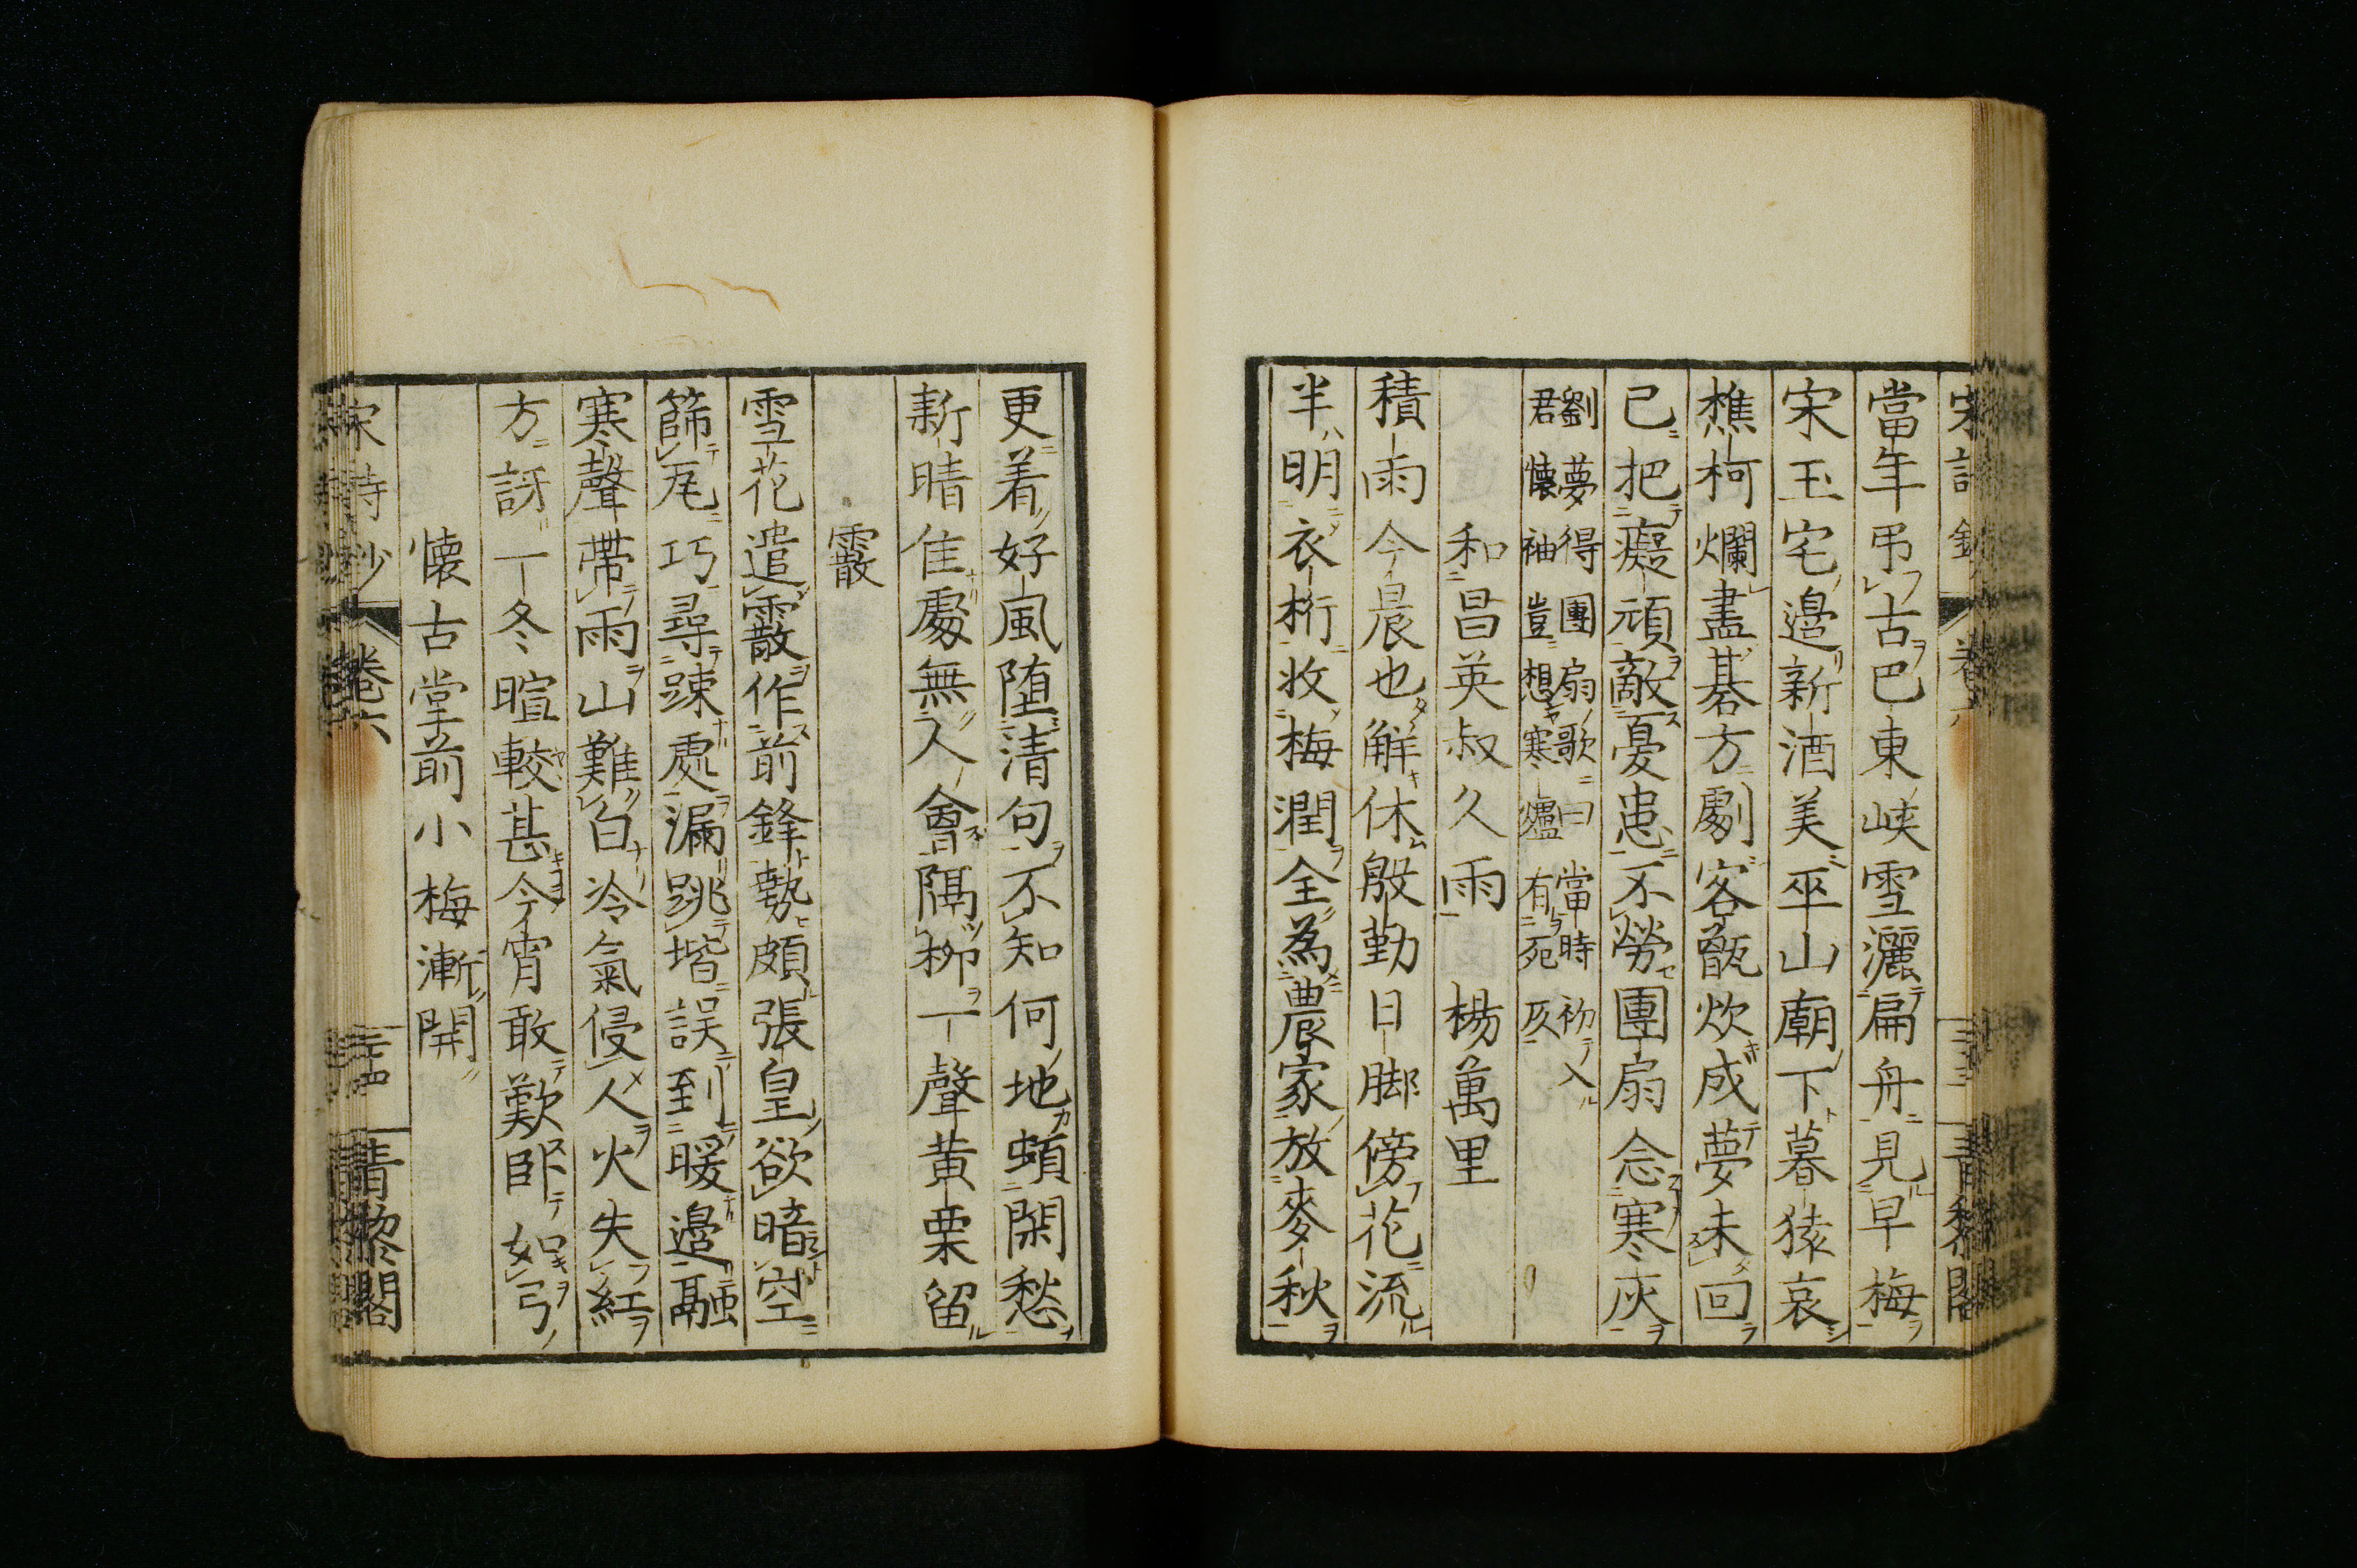 當年弔古巴東峡雪灑扁舟見早梅
宋玉宅邉新酒美巫山廟下暮猿哀
樵柯爛盡棊方劇客甑炊成夢未回
已把癡頑敵憂患不勞團扇念寒灰
劉夢得團扇歌曰當時初入
君懐袖豈想寒爐有死灰
和昌英叔久雨　楊萬里
積雨今晨也解休殷勤日脚傍花流
半明衣桁收梅潤全為農家放麥秋
更着好風堕清句不知何地頓閑愁
新晴佳處無人會隔柳一聲黄栗留
霰
雪花遣霰作前鋒勢頗張皇欲暗空
篩瓦巧尋踈處漏跳堦誤到暖邉融
寒聲帶雨山難白冷氣侵人火失紅
方訝一冬暄較甚今宵敢歎卧如弓
懐古堂前小梅漸開
宋詩鈔　卷六　三十四　青黎閣